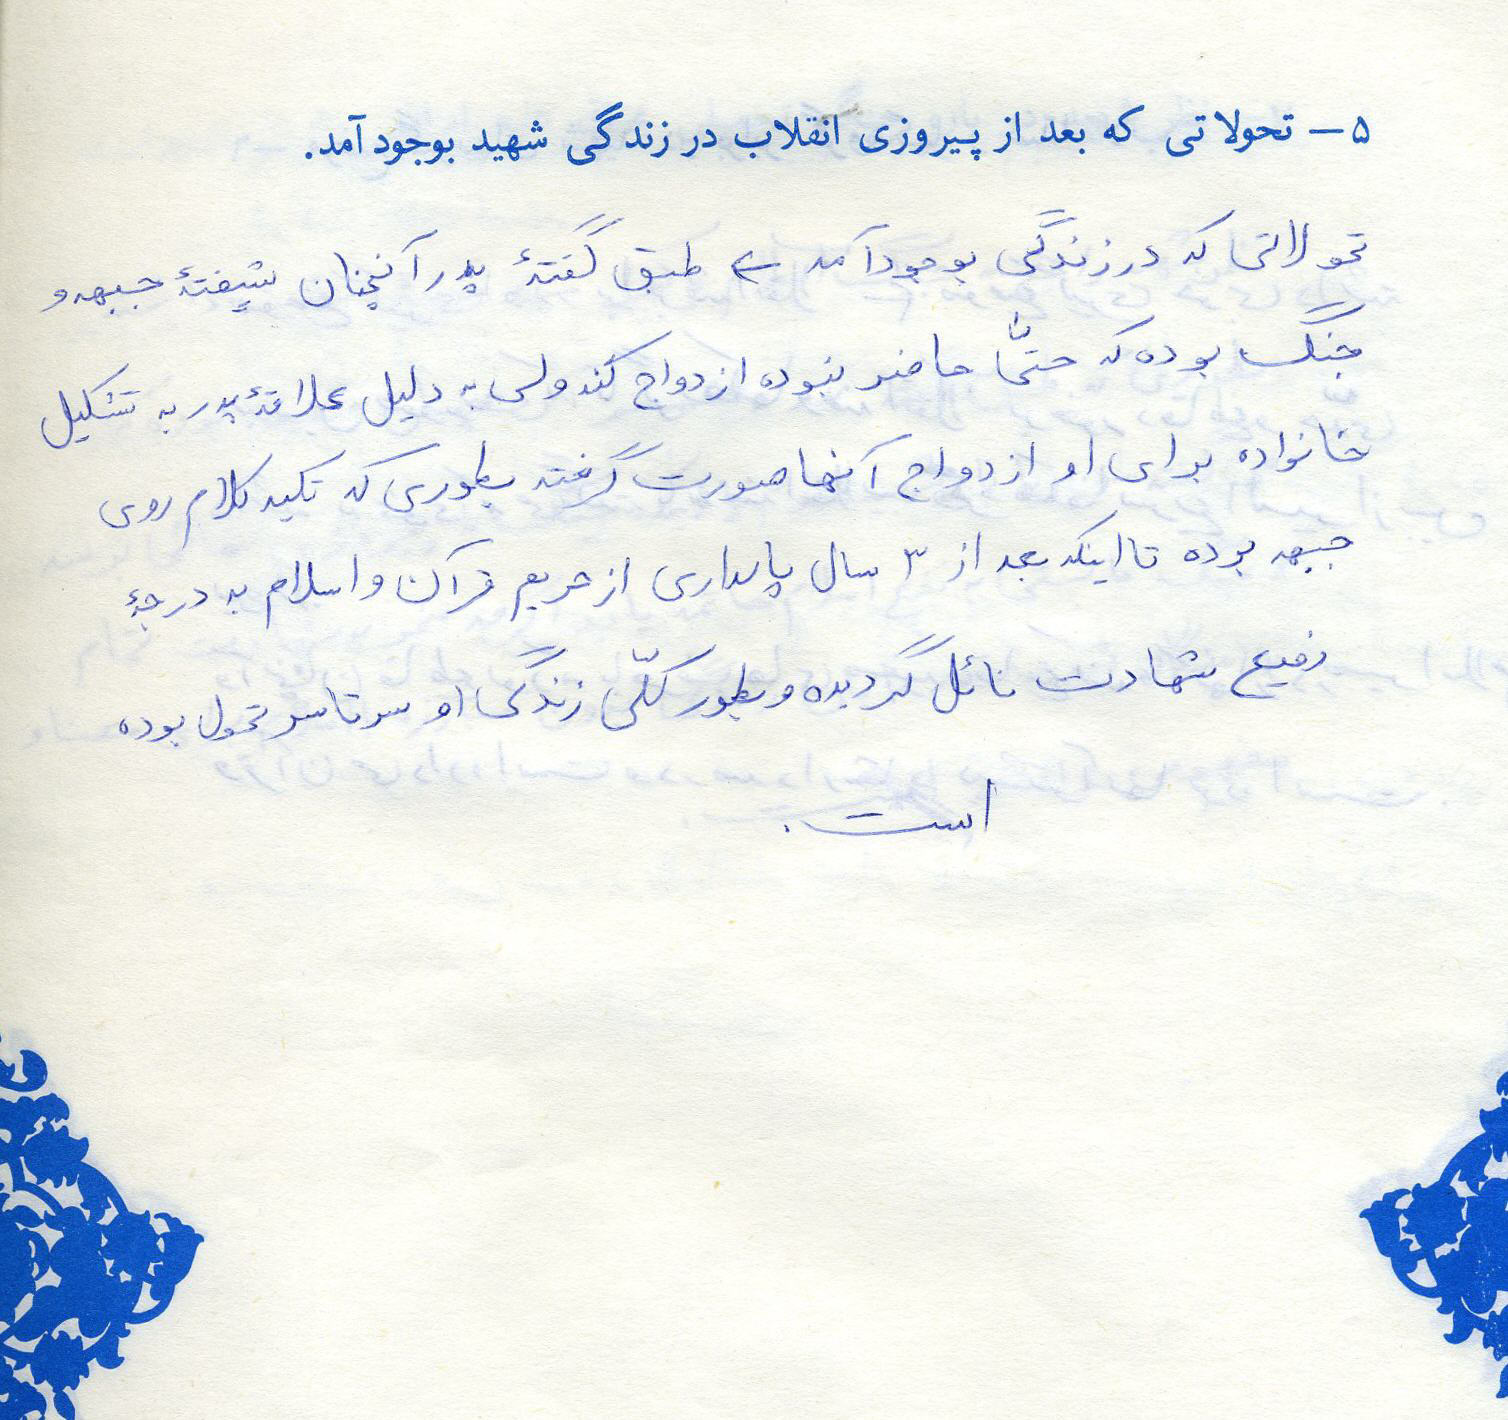 ۵ – تحولاتی که بعد از پیروزی انقلاب در زندگی شهید بوجود آمد.
تحولاتی که در زندگی بوجود آمد ← طبق گفتهٔ پدر آنچنان شیفتهٔ جبهه و
جنگ بوده که حتّیٰ حاضر نبوده ازدواج کند ولی به دلیل علاقهٔ پدر به تشکیل
خانواده برای او ازدواج آنها صورت گرفته بطوری که تکیه کلام روی
جبهه بوده تا اینکه بعد از ۳ سال پاسداری از حریم قرآن و اسلام به درجهٔ
رفیع شهادت نائل گردیده و بطور کلّی زندگی او سرتاسر تحول بوده
است .